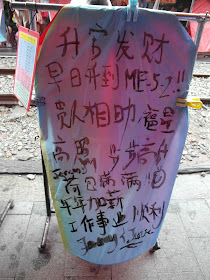 升官发财
早日升到 ME-5.2!!
贵人相助 福星
高照 步步高升
荷包满满
年年加薪
工作事业顺利